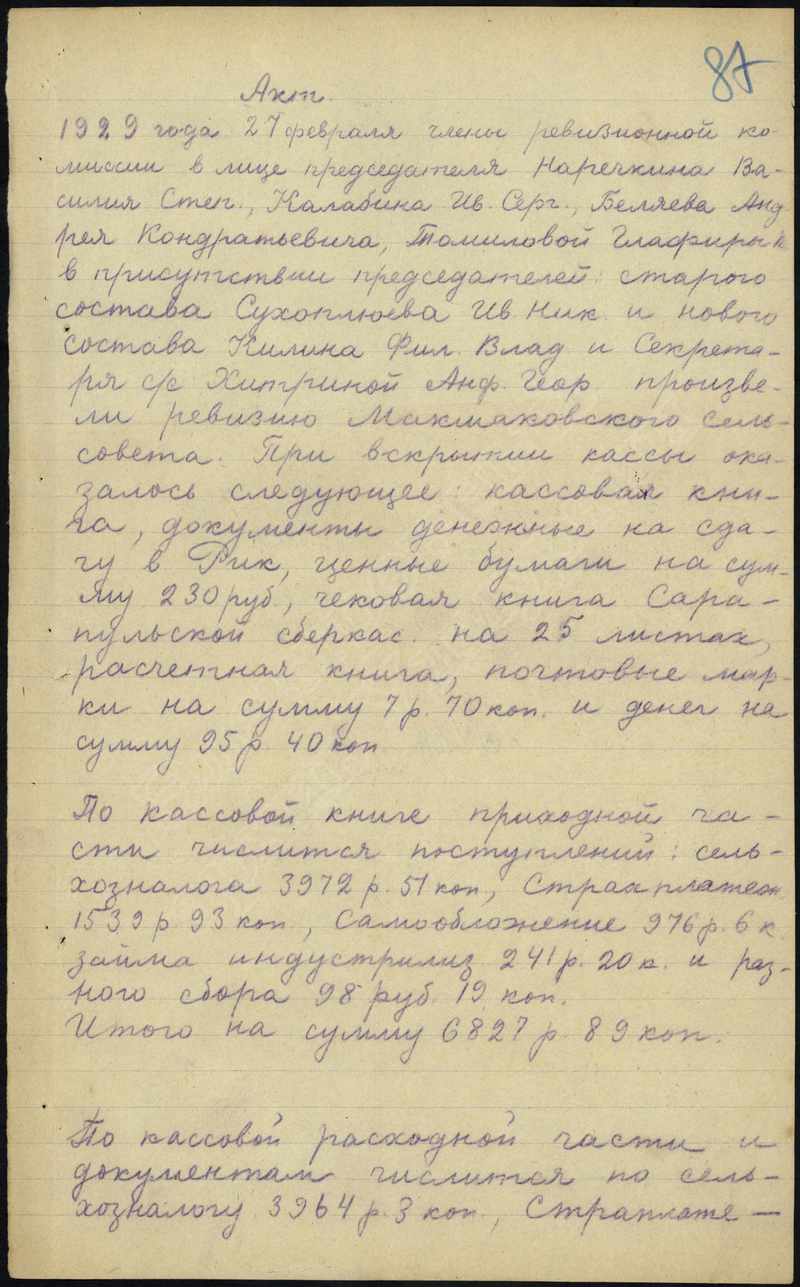 87
Акт.
1929 года 27 февраля члены ревизионной ко-
миссии в лице председателя Наречкина Ва-
силия Степ., Калабина Ив. Серг., Беляева Анд
рея Кондратьевича, Томиловой Глафиры
в присутствии председателей: старого
состава Сухоплюева Ив Ник. и нового
состава Килина Фил. Влад и Секрета-
ря с/с Хитриной Анф. Геор произве-
ли ревизию Макшаковского сель-
совета. При вскрытии кассы ока-
залось следующее: кассовая кни-
га, документы денежные на сда-
чу в Рик, ценные бумаги на сум-
му 230 руб, чековая книга Сара-
пульской сберкас. на 25 листах,
расчетная книга, почтовые мар-
ки на сумму 7 р. 70 коп. и денег на
сумму 95 р. 40 коп
По кассовой книге приходной ча-
сти числится поступлений: сель-
хозналога 3972 р. 51 коп, Страх платеж
1539 р 93 коп, Самообложение 976 р. 6 к
займа индустрилиз 241 р. 20 к. и раз-
ного сбора 98 руб. 19 коп.
Итого на сумму 6827 р 89 коп.
По кассовой расходной части и
документам числится по сель-
хозналогу 3964 р. 3 коп, Страплате-